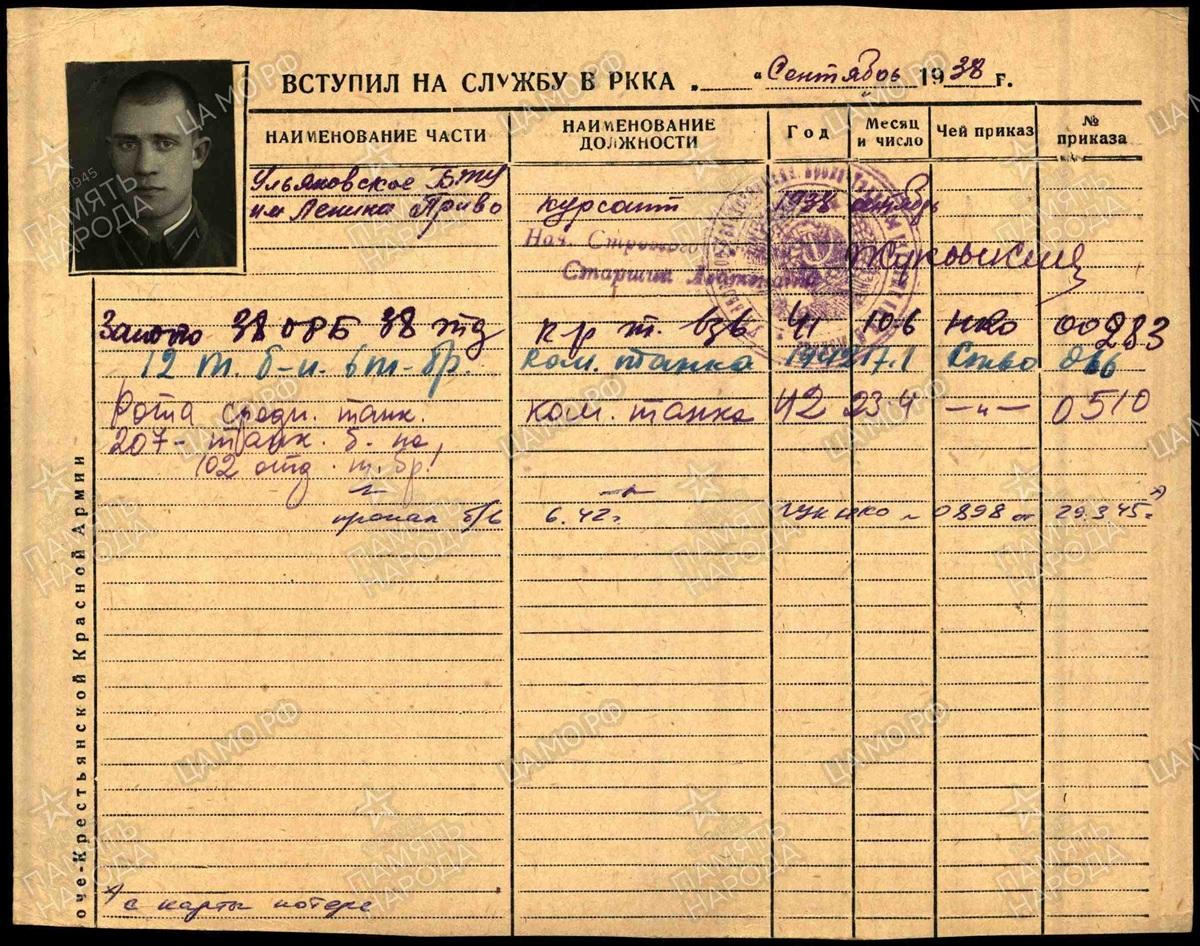 ВСТУПИЛ НА СЛУЖБУ В РККА „ “ Сентябрь 1938 г.
НАИМЕНОВАНИЕ ЧАСТИ
НАИМЕНОВАНИЕ ДОЛЖНОСТИ
Год
Месяц и число
Чей приказ
№ приказа
Ульяновское БТУ
им Ленина Приво курсант 1938 сентябрь
Нач. Строевого
Старшин
Жуковский
Запово 38 ОРБ 38 тд к-р т. взв 41 10.6 НКО 00283
12 т. б-н. 6 т. бр. ком. танка 1942 17.1 066
Рота средн. танк. ком. танка 42 23.4 —"— 0510
207 - танк. б. на
102 отд. т. бр.
пропал б/в 6.42 г. ГУК НКО 0898 от 29.3.45 г. х)
оче-Крестьянской Красной Армии
х/ с карты потерь
ЦАМО.РФ
ПАМЯТЬ
НАРОДА
1945